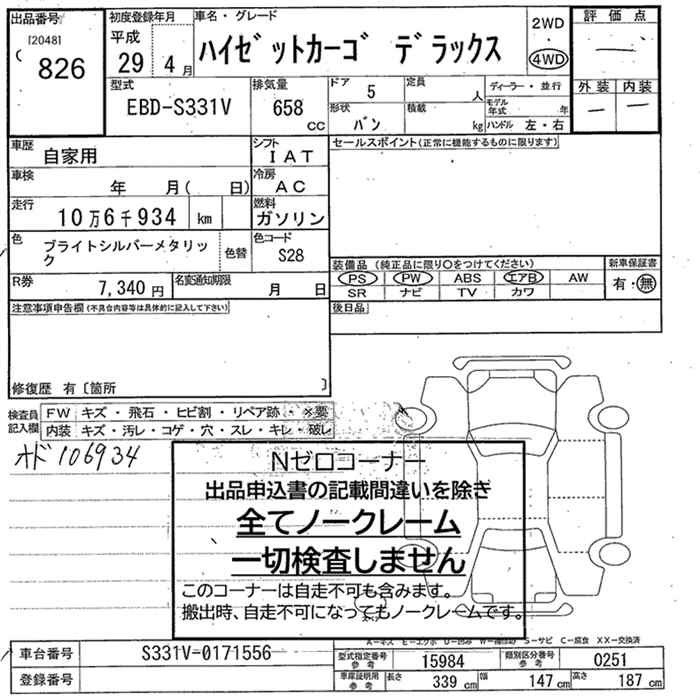 出品番号 初度登録年月 車名・グレード 2WD 評価点
[2048] 平成 ハイゼットカーゴ デラックス
826 29 4月 4WD 一
型式 排気量 ドア 5 定員 人 ディーラー・並行 外装 内装
EBD-S331V 658 cc 形状 バン 積載 kg モデル年式 年 一 一
ハンドル 左・右
車歴 自家用 シフト IAT セールスポイント(正常に機能するものに限ります)
車検 年 月( 日) 冷房 AC
走行 10万6千934 km 燃料 ガソリン
色 ブライトシルバーメタリック 色替 色コード S28
装備品 (純正品に限り○をつけてください) 新車保証書
R券 7,340円 名変通知期限 月 日 PS PW ABS エアB AW 有・無
SR ナビ TV カワ
注意事項申告欄(不具合内容等は具体的に記入して下さい) 後日品
修復歴 有〔箇所 〕
検査員記入欄 FW キズ・飛石・ヒビ割・リペア跡・※要
内装 キズ・汚レ・コゲ・穴・スレ・キレ・破レ
オド106934
Nゼロコーナー
出品申込書の記載間違いを除き
全てノークレーム
一切検査しません
このコーナーは自走不可も含みます。
搬出時、自走不可になってもノークレームです。
A-キズ E-エクボ U-凹み S-サビ C-腐食 XX-交換済
車台番号 S331V-0171556 型式指定番号 参考 15984 類別区分番号 参考 0251
登録番号 車庫証明用 参考 長さ 339 cm 幅 147 cm 高さ 187 cm